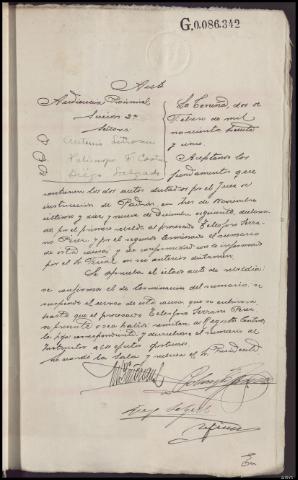 G.0.086.342
Auto
Audiencia Provincial
Sección 2ª
Señores
Antonio
Felisindo F. Castro
Diego Salgado
La Coruña, dos de
Febrero de mil
novecientos treinta
y cinco.
Aceptando los
fundamentos que
contienen los dos autos dictados por el Juez de
instrucción de Padrón, en tres de Noviembre
último y diez y nueve de Diciembre siguiente, declaran-
do, por el primero rebelde al procesado Telesforo Serra-
no Pérez y por el segundo terminado el sumario
de esta causa y de conformidad con lo informado
por el Sr. Fiscal en su anterior dictamen.
Se aprueba el citado auto de rebeldía:
se confirma el de terminación del sumario, se
suspende el curso de esta causa que se archivará
hasta que el procesado Telesforo Serrano Pérez
se presente o sea habido: remítase al Registro Central
la hoja correspondiente y devuélvase el sumario al
Instructor a los efectos
lo mandó la Sala y rubrica el Sr. Presidente
Diego Salgado